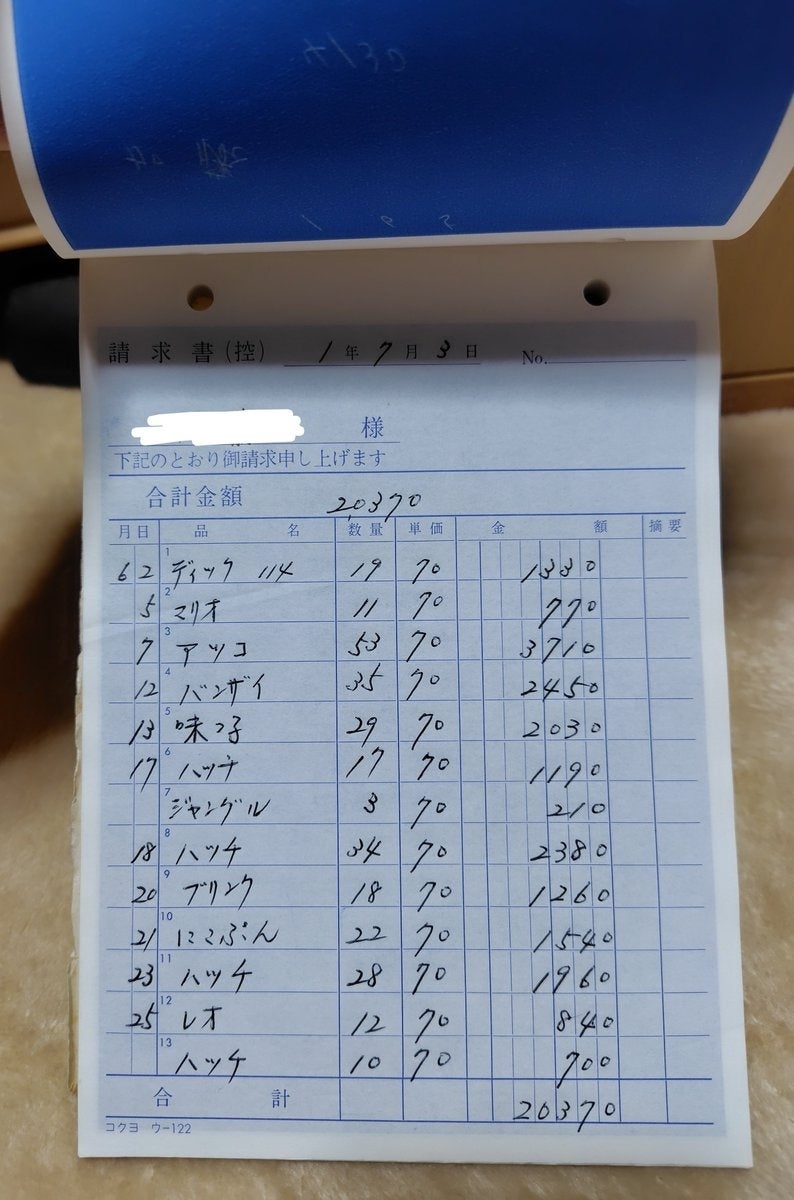 4130
加藤
請求書(控) 1年7月3日 No.
様
下記のとおり御請求申し上げます
合計金額 20,370
月日 品名 数量 単価 金額 摘要
6 2 1 ディック 114 19 70 1330
5 2 マリオ 11 70 770
7 3 アツコ 53 70 3710
12 4 バンザイ 35 70 2450
13 5 味っ子 29 70 2030
17 6 ハッチ 17 70 1190
7 ジャングル 3 70 210
18 8 ハッチ 34 70 2380
20 9 ブリンク 18 70 1260
21 10 にこぷん 22 70 1540
23 11 ハッチ 28 70 1960
25 12 レオ 12 70 840
13 ハッチ 10 70 700
合計 20370
コクヨ ウ-122